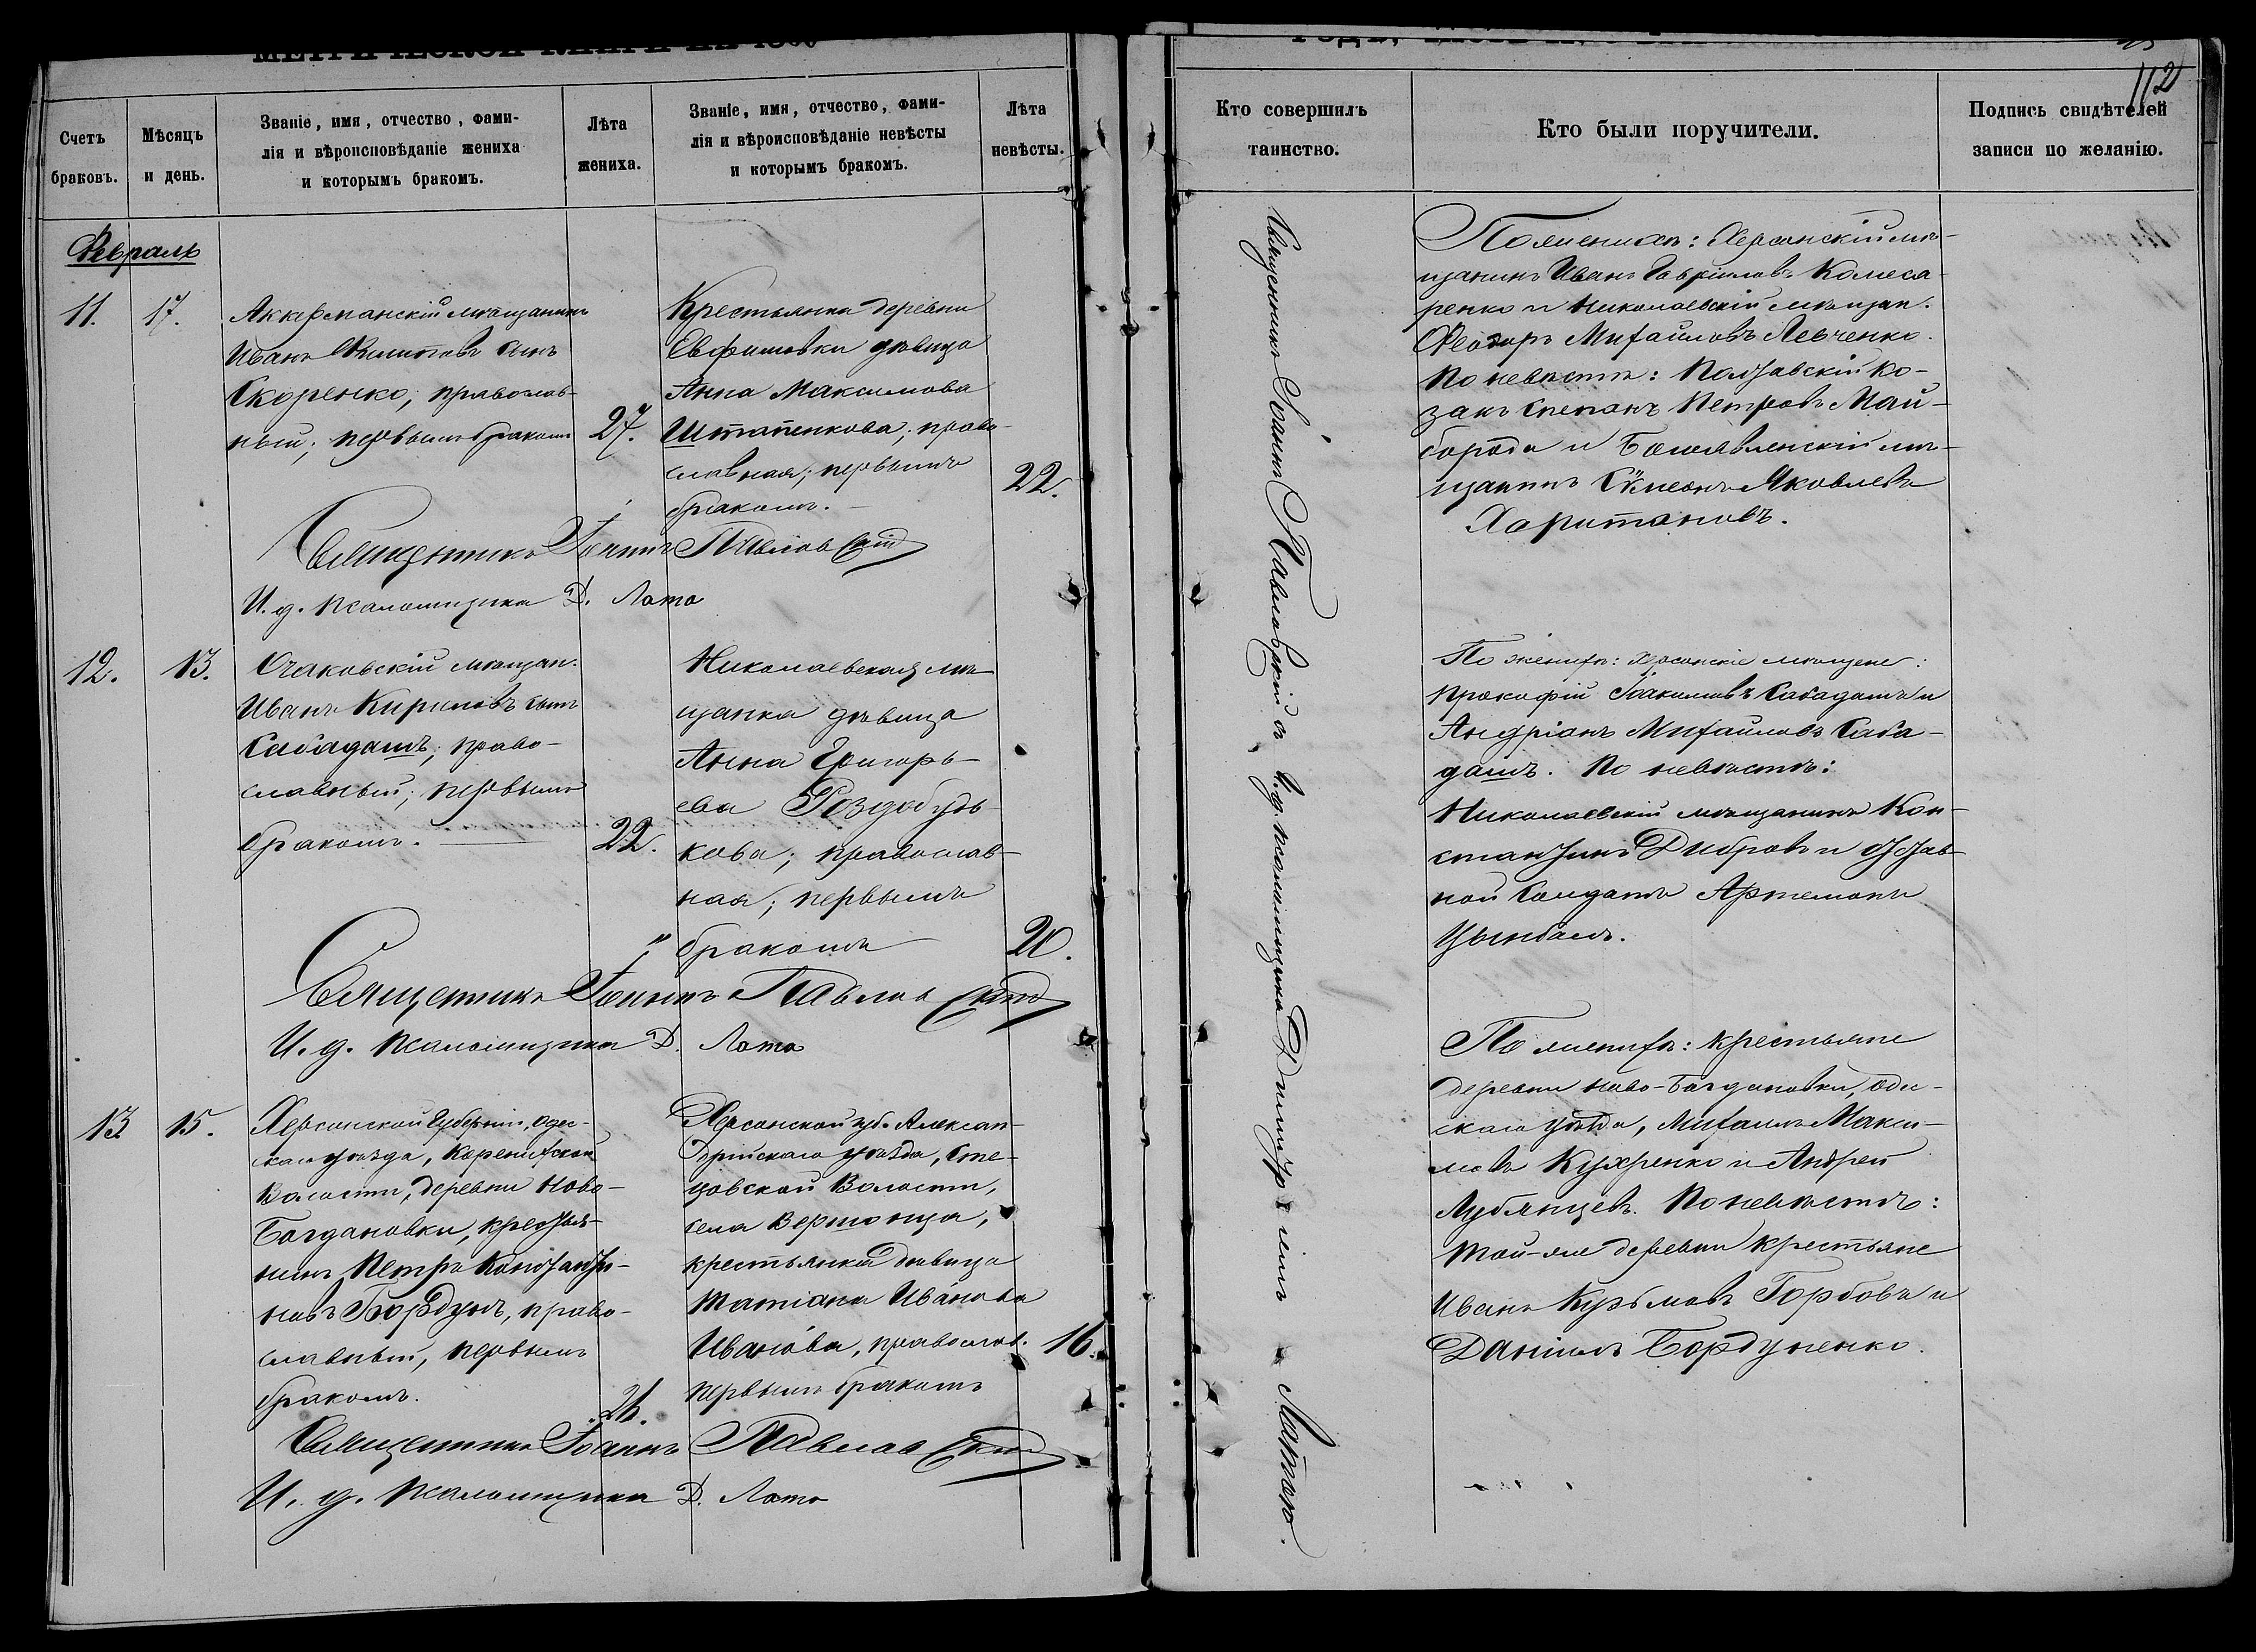 Счетъ
браковъ.
Мѣсяцъ
и день.
Званіе, имя, отчество, фами-
лія и вѣроисповѣданіе жениха
и которымъ бракомъ.
Лѣта
жениха.
Званіе, имя, отчество, фами-
лія и вѣроисповѣданіе невѣсты
и которымъ бракомъ.
Лѣта
невѣсты.
Февраль
11.
17.
Аккерманскій мѣщанинъ
Иванъ Филиповъ сынъ
Скоренко; православ-
ный; первымъ бракомъ
27.
Крестьянка деревни
Евфимовки дѣвица
Анна Максимова
Штапенкова; право-
славная; первымъ
бракомъ.
22.
Священникъ Іоаннъ Павловскій
И. д. псаломщика Д. Лото
12.
13.
Очаковскій мѣщан.
Иванъ Кириловъ сынъ
Сабадашъ; право-
славный; первымъ
бракомъ.
22.
Николаевская мѣ-
щанка дѣвица
Анна Григорь-
ева Роздобудь-
кова; православ-
ная; первымъ
бракомъ
20.
Священникъ Іоаннъ Павловскій
И. д. псаломщика Д. Лото
13
15.
Херсонской губерніи, Одес-
скаго уѣзда,
волости, деревни Ново-
Богдановки, крестья-
нинъ Петръ Константи-
новъ Бордунъ, право-
славный, первымъ
бракомъ.
26.
Херсонской губ. Алексан-
дрійскаго уѣзда,
волости,
села
крестьянка дѣвица
Татіана Иванова
Иванова, православ.
первымъ бракомъ
16.
Священникъ Іоаннъ Павловскій
И. д. псаломщика Д. Лото
112
Кто совершилъ
таинство.
Кто были поручители.
Подпись свидѣтелей
записи по желанію.
Священникъ Іоаннъ Павловскій съ И. д. псаломщика Димитріемъ Лотою.
По женихѣ: Херсонскій мѣ-
щанинъ Иванъ Гавриловъ Колеса-
ренко и Николаевскій мѣщан.
Феодоръ Михайловъ Левченко.
По невѣстѣ: Полтавскій ко-
закъ Степанъ Петровъ Май-
борода и Богоявленскій мѣ-
щанинъ Сѵмеонъ Яковлевъ
Харитоновъ.
По женихѣ: Херсонскіе мѣщане:
Прокофій Іоакимовъ Сабадашъ и
Андріанъ Михайловъ Саба-
дашъ. По невѣстѣ:
Николаевскій мѣщанинъ Кон-
стантинъ Дибровъ и отстав-
ной солдатъ Артемонъ
Цымбалъ.
По женихѣ: крестьяне
деревни Ново-Богдановки, Одес-
скаго уѣзда, Михаилъ Макси-
мовъ Кухренко и Андрей
Лубянцевъ. По невѣстѣ:
той-же деревни крестьяне
Иванъ Кузьмовъ Горбовъ и
Даніилъ Бордуненко.